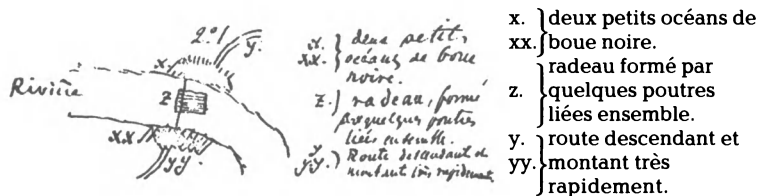 2º1
y.
x.
Rivière
z
xx
yy.
x. } deux petits
xx. } océans de boue
noire.
z.) radeau, formé
par quelques poutres
liées ensemble.
y
yy. ) Route descendant et
montant très rapidement
x. deux petits océans de
xx. boue noire.
radeau formé par
z. quelques poutres
liées ensemble.
y. route descendant et
yy. montant très
rapidement.